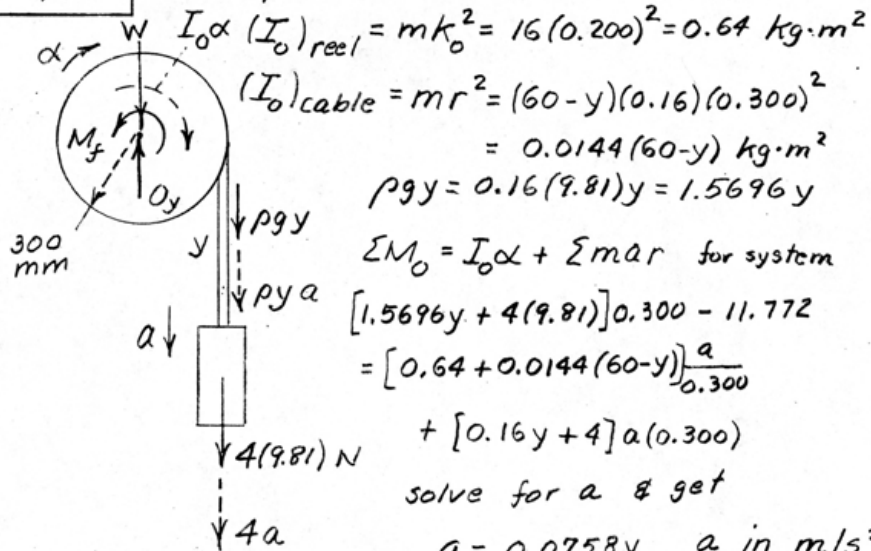 W
I₀α
α
(I₀)reel = mk₀² = 16(0.200)² = 0.64 kg·m²
(I₀)cable = mr² = (60-y)(0.16)(0.300)²
= 0.0144(60-y) kg·m²
M_f
O_y
ρgy = 0.16(9.81)y = 1.5696y
300
mm
y
ρgy
ρya
ΣM₀ = I₀α + Σmar for system
[1.5696y + 4(9.81)]0.300 - 11.772
a
= [0.64 + 0.0144(60-y)] a/0.300
+ [0.16y + 4]a(0.300)
4(9.81) N
solve for a & get
4a
a = 0.0758y a in m/s²